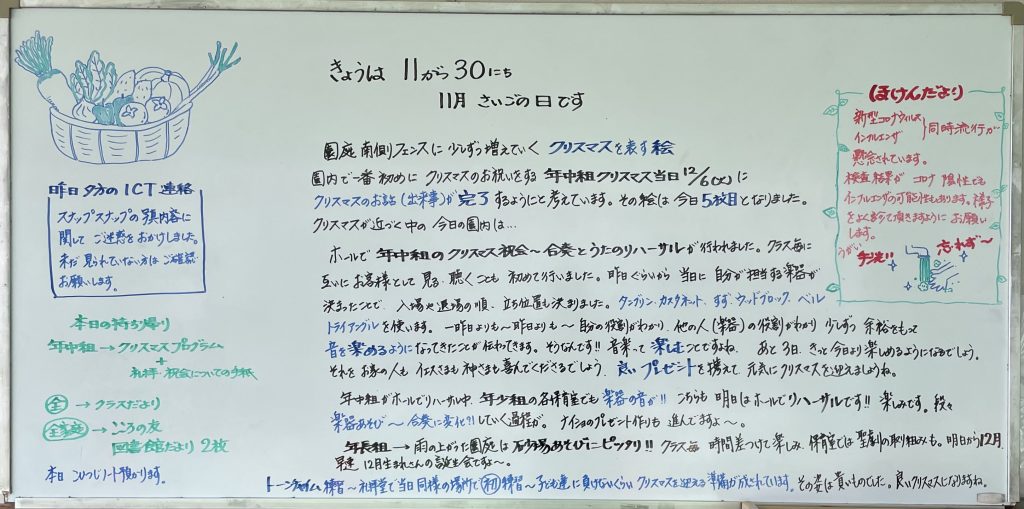 きょうは 11がつ30にち
11月 さいごの日です
園庭南側フェンスに 少しずつ増えていく クリスマスを表す絵
園内で一番初めに クリスマスのお祝いをする 年中組クリスマス当日12/6(火)に
クリスマスのお話(出来事)が 完了するようにと考えています。その絵は 今日5枚目となりました。
クリスマスが近づく中の 今日の園内は…
ホールで 年中組のクリスマス祝会～合奏とうたのリハーサルが行われました。クラス毎に
互いにお客様として 見る、聴くことも 初めて行いました。昨日ぐらいから 当日に 自分が担当する楽器が
決まったことで、入場や退場の順、立ち位置も決まりました。タンブリン、カスタネット、すず、ウッドブロック、ベル
トライアングルを使います。一昨日よりも～昨日よりも～自分の役割がわかり、他の人(楽器)の役割がわかり 少しずつ 余裕をもって
音を楽めるようになってきたことが伝わってきます。そうなんです!! 音楽って 楽しむってことですよね。 あと3日、きっと今日より楽しめるようになるでしょう。
それを お家の人も イエスさまも 神さまも 喜んでくださるでしょう。良いプレゼントを携えて 元気にクリスマスを迎えましょうね。
年中組がホールでリハーサル中、年少組の各保育室でも 楽器の音が!! こちらも 明日はホールでリハーサルです!! 楽しみです。段々
楽器あそび～合奏に変化?!していく過程が。 ナイショのプレゼント作りも 進んでますよ～。
年長組→雨の上がった園庭は 砂場あそびにピッタリ!! クラス毎 時間差つけて楽しみ、保育室では 聖劇の取り組みも。明日から12月
早速 12月生まれさんの誕生会ですよ～。
トーンチャイム練習～礼拝堂で当日同様の場所で 初 練習～子ども達に負けないくらい クリスマスを迎える準備が成されています。その姿は貴いものでした。良いクリスマスになりますね。
昨日夕方のICT連絡
スナップスナップの写真内容に
関して ご迷惑をおかけしました。
未だ見られていない方は ご確認
お願いします。
本日の持ち帰り
年中組→クリスマスプログラム
+
礼拝・祝会についての手紙
全→クラスだより
全家庭→こころの友
図書館だより 2枚
本日 こひつじノート預かります。
ほけんだより
新型コロナウィルス
インフルエンザ
同時流行が
懸念されています。
検査結果が コロナ 陽性でも
インフルエンザの可能性もあります。様子
をよく診て頂きますように お願い
します。
うがい
手洗い
忘れず～